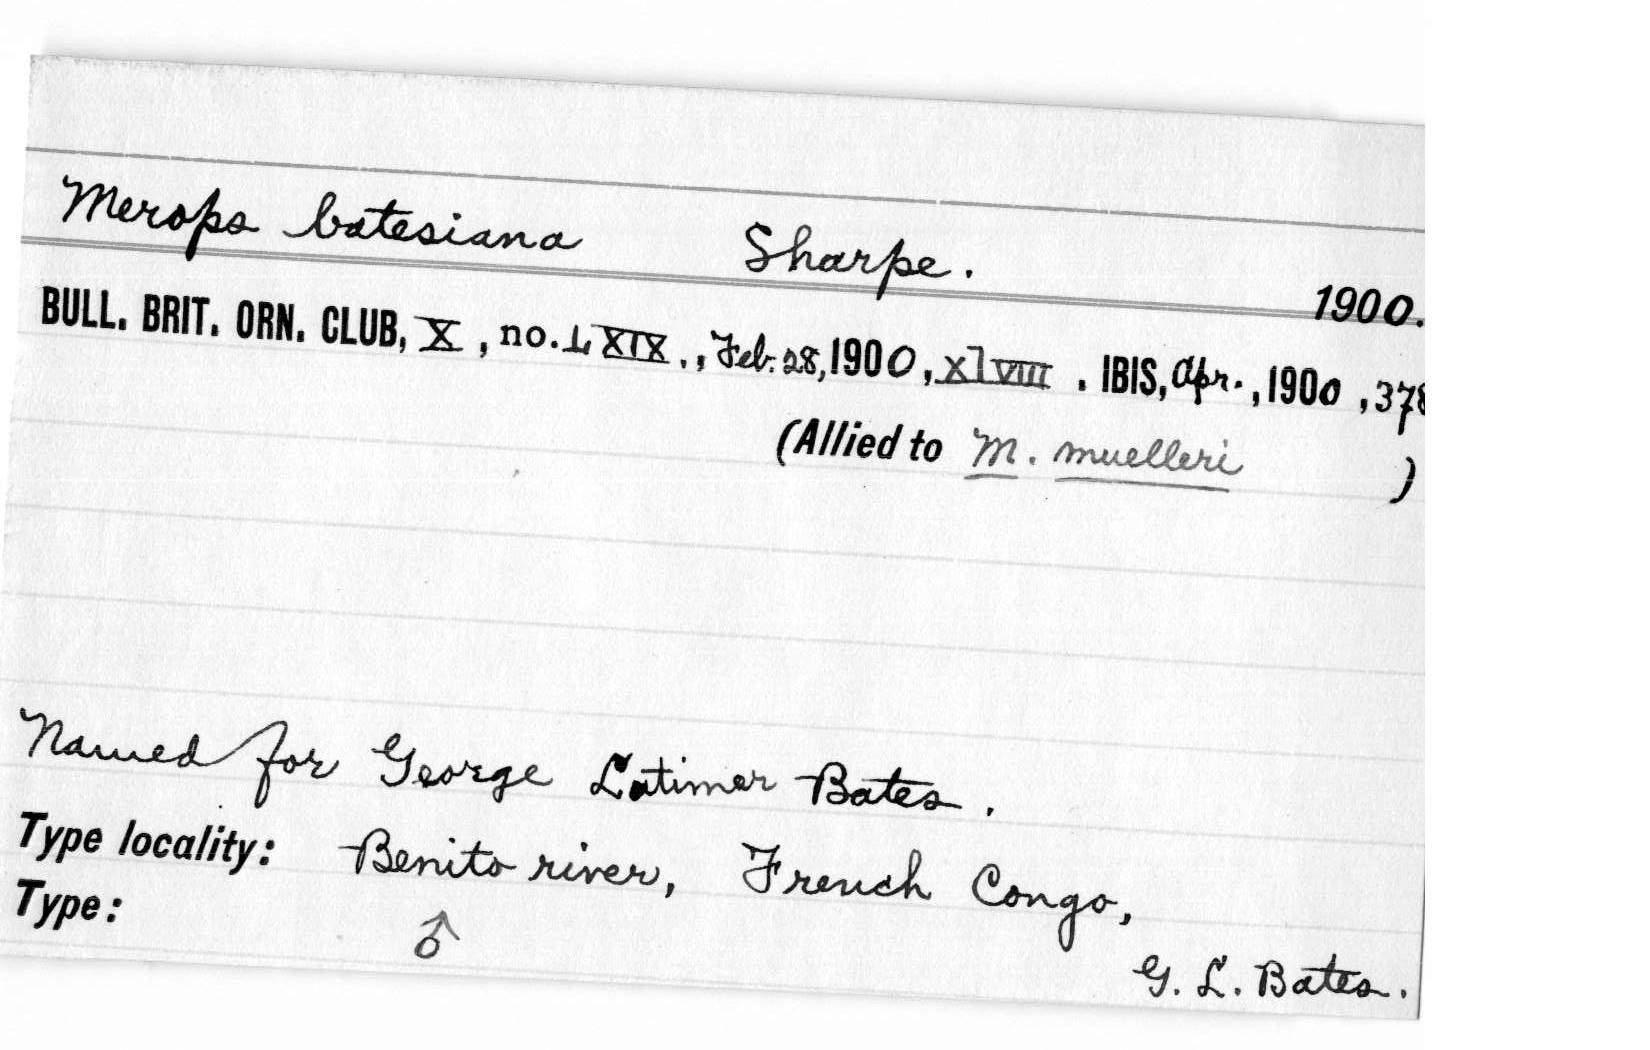 Merops batesiana Sharpe.
1900.
BULL. BRIT. ORN. CLUB, X, no. LXIX., Feb. 28, 1900, xlviii. IBIS, Apr., 1900, 378
(Allied to M. muelleri )
Named for George Latimer Bates.
Type locality: Benito river, French Congo,
Type: ♂
G. L. Bates.